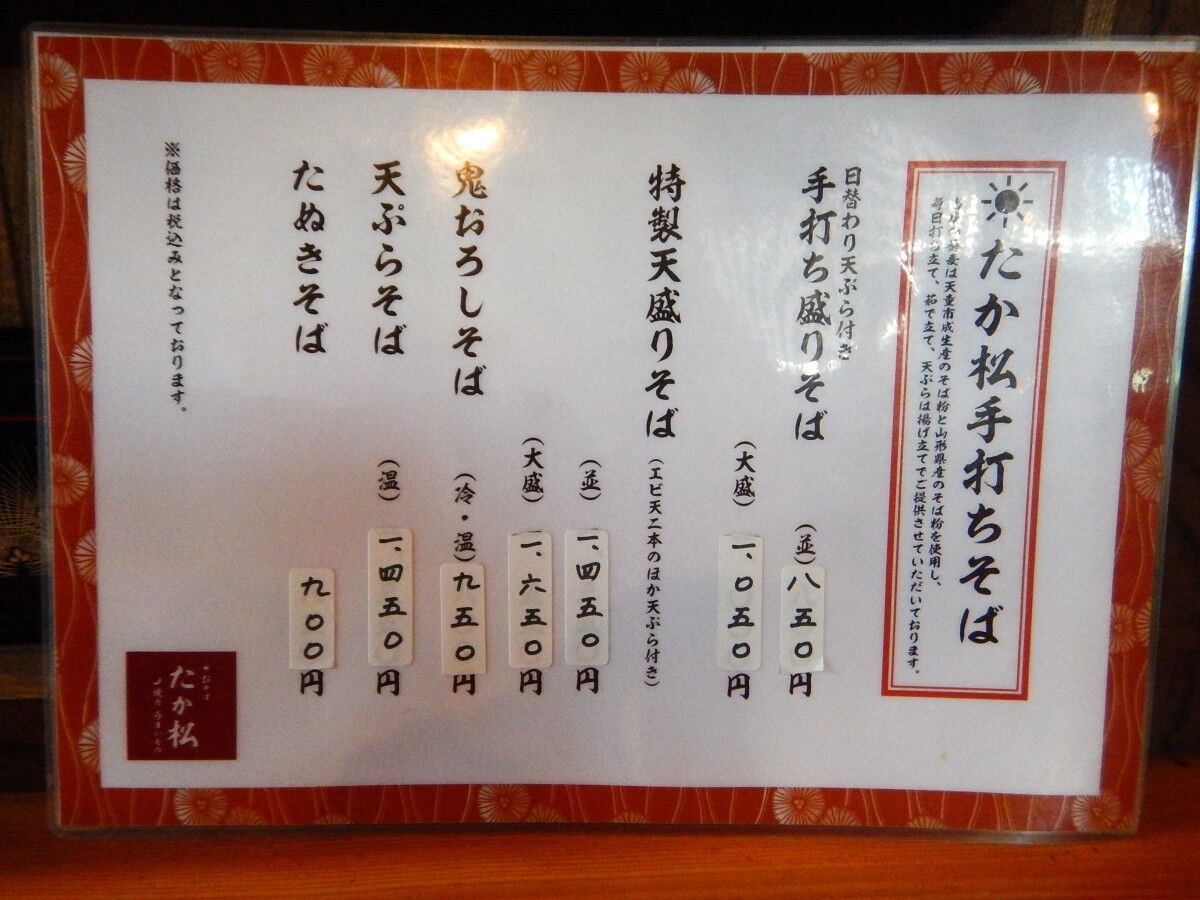 たか松手打ちそば
蕎麦は天童市成生産のそば粉と山形県産のそば粉を使用し、
毎日打ち立て、茹で立て、天ぷらは揚げ立てでご提供させていただいております。
日替わり天ぷら付き
手打ち盛りそば
(並)八五〇円
(大盛)一、〇五〇円
特製天盛りそば(エビ天二本のほか天ぷら付き)
(並)一、四五〇円
(大盛)一、六五〇円
鬼おろしそば(冷・温)九五〇円
天ぷらそば(温)一、四五〇円
たぬきそば九〇〇円
※価格は税込みとなっております。
たか松